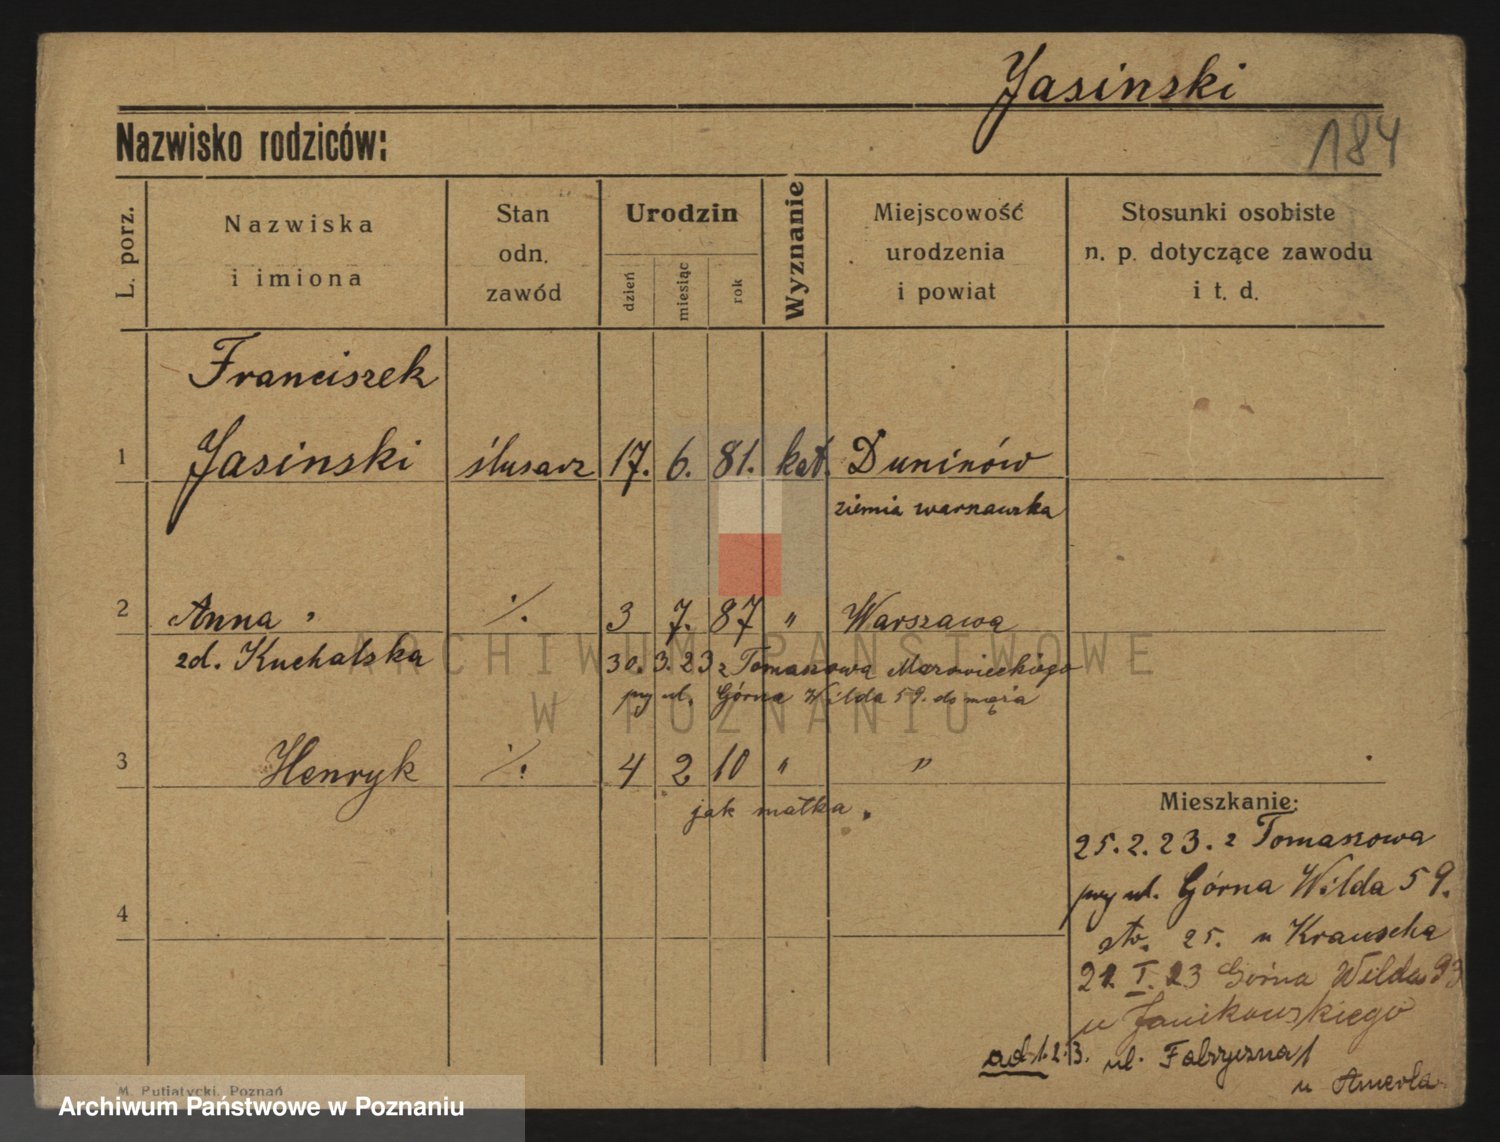 Jasinski
184
Nazwisko rodziców:
L. porz.
Nazwiska
i imiona
Stan
odn.
zawód
Urodzin
dzień
miesiąc
rok
Wyznanie
Miejscowość
urodzenia
i powiat
Stosunki osobiste
n. p. dotyczące zawodu
i t. d.
Franciszek
1 Jasinski ślusarz 17. 6. 81. kat. Duninów
ziemia warszawska
2 Anna " ·/. 3 7. 87 " Warszawa
zd. Kuchalska 30. 3. 23 z Tomaszowa Mazowieckiego
ARCHIWUM PAŃSTWOWE
W POZNANIU
przy ul. Górna Wilda 59. do męża
3 Henryk ·/. 4 2 10 " "
jak matka.
Mieszkanie:
25.2.23. z Tomaszowa
przy ul. Górna Wilda 59.
4
stw. 25. u Krauscha
Górna Wilda 93
u Janikowskiego
ad 1.2.3. ul. Fabryczna 1
u Amerla
M. Putiatycki, Poznań
Archiwum Państwowe w Poznaniu